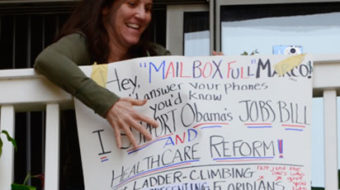 Hey, "MAILBOX FULL" Marco!
answer your phones
you'd know
I Obama's JOBS BILL
AND
HEALTHCARE REFORM!
LADDER-CLIMBING
FLORIDIANS